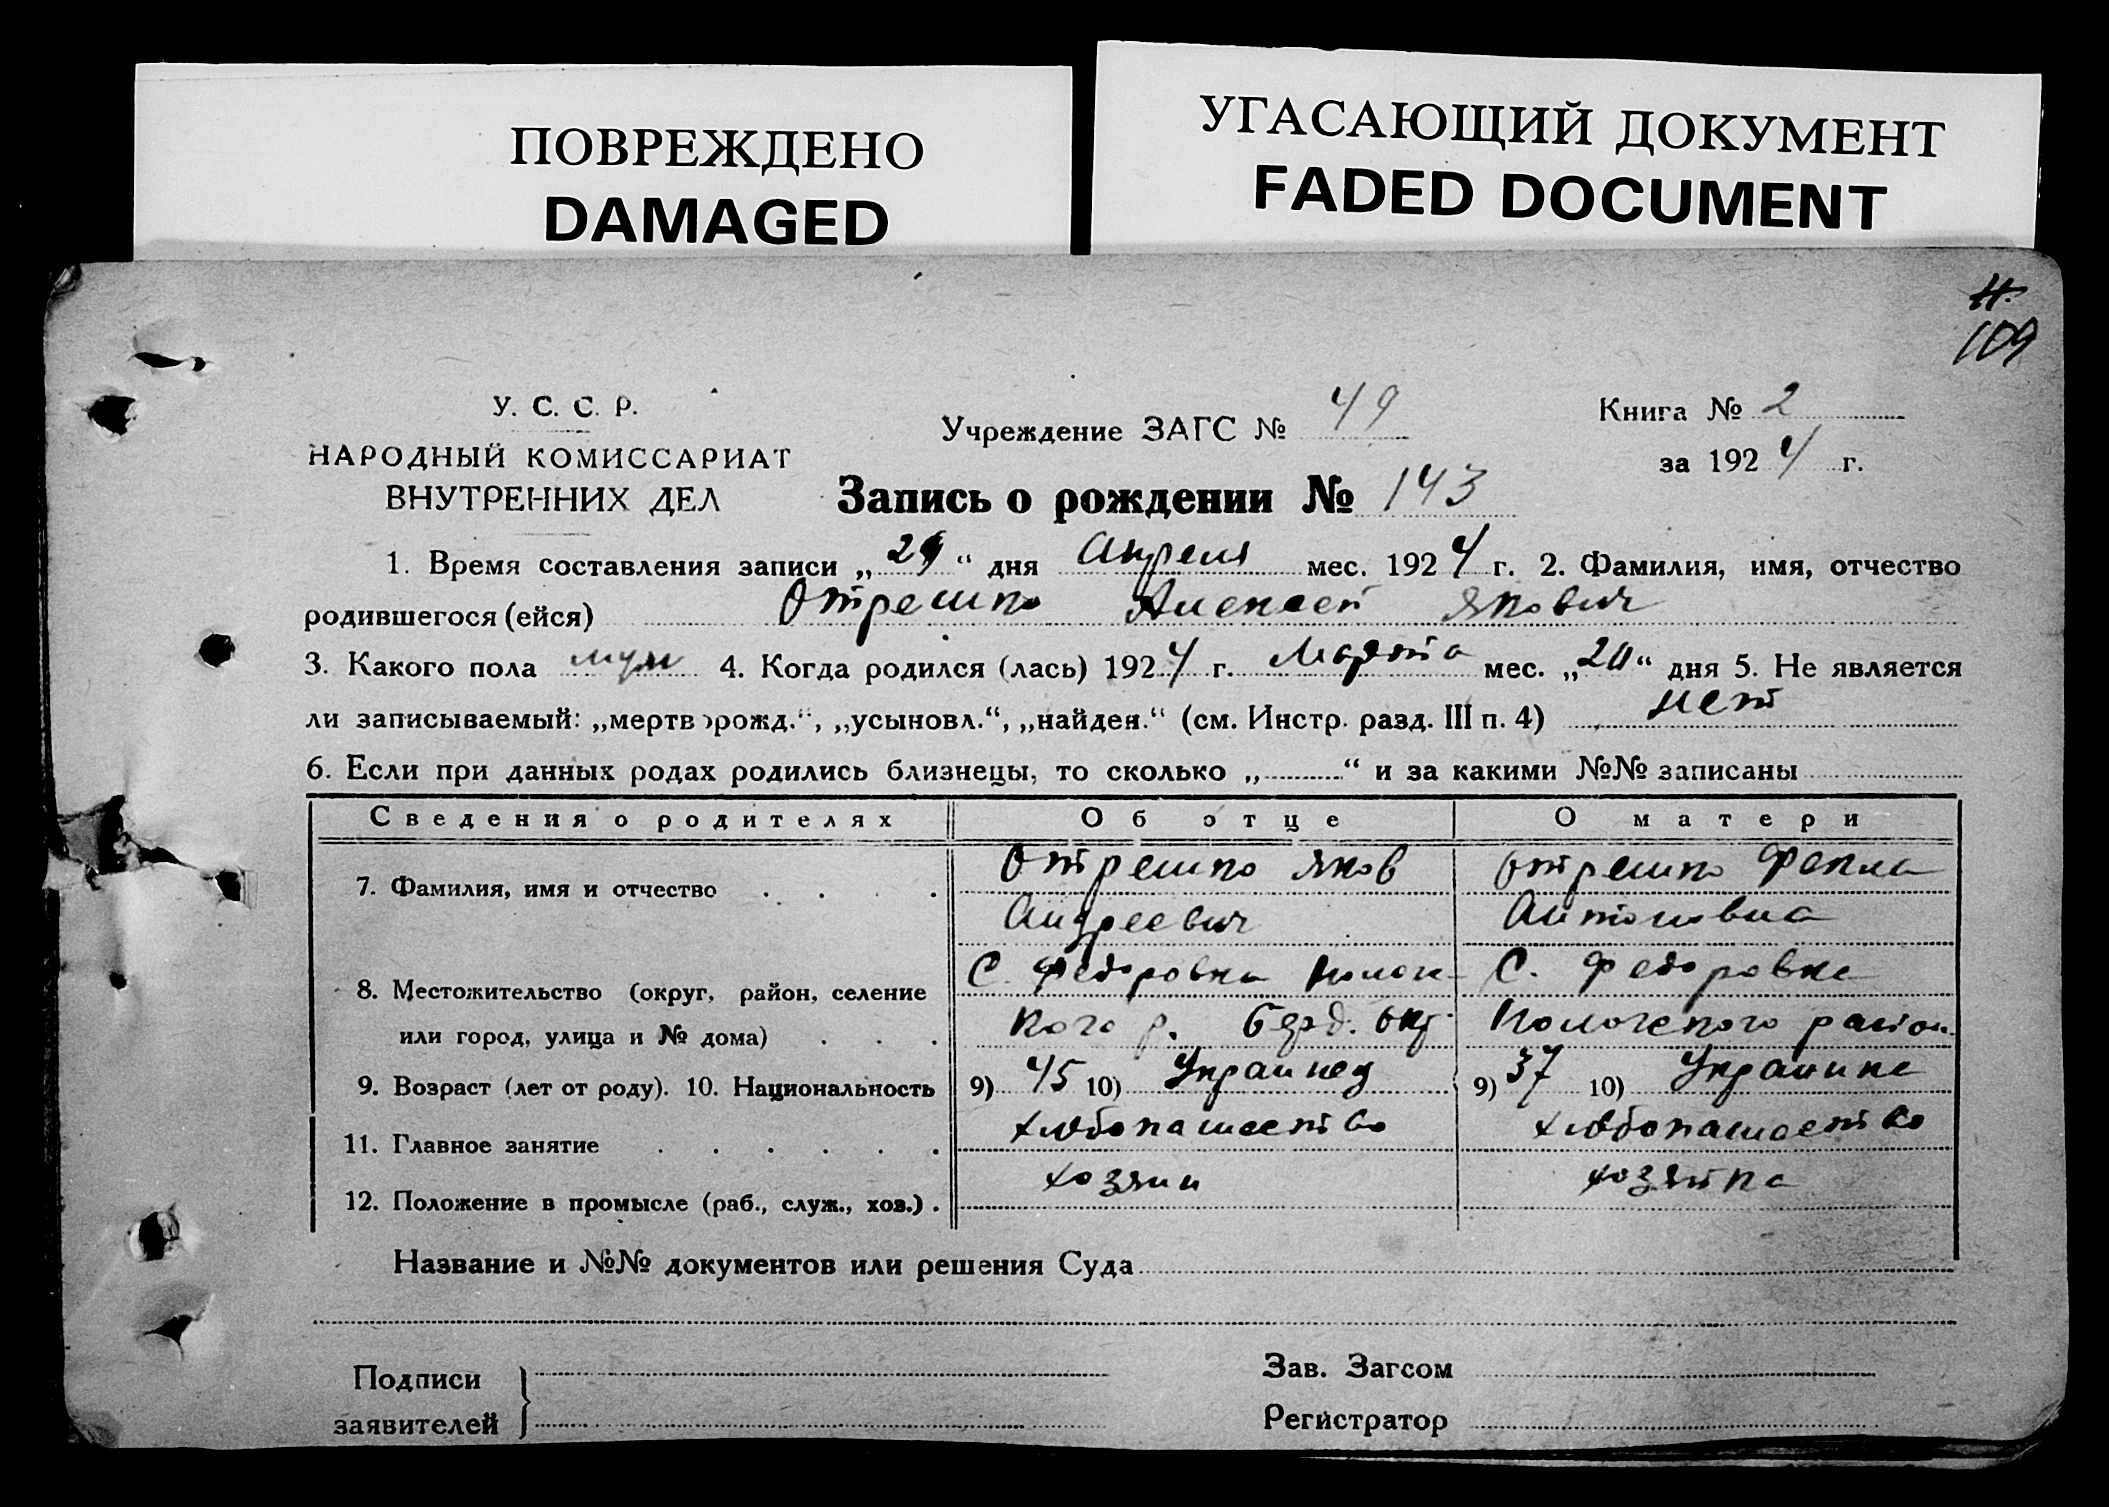 ПОВРЕЖДЕНО
DAMAGED
УГАСАЮЩИЙ ДОКУМЕНТ
FADED DOCUMENT
109
У. С. С. Р.
НАРОДНЫЙ КОМИССАРИАТ
ВНУТРЕННИХ ДЕЛ
Учреждение ЗАГС № 49
Книга № 2
за 1924 г.
Запись о рождении № 143
1. Время составления записи „29“ дня Апреля мес. 1924 г. 2. Фамилия, имя, отчество
родившегося (ейся) Отрешко Алексей Якович
3. Какого пола муж 4. Когда родился (лась) 1924 г. Марта мес. „20“ дня 5. Не является
ли записываемый: „мертворожд.“, „усыновл.“, „найден.“ (см. Инстр. разд. III п. 4) нет
6. Если при данных родах родились близнецы, то сколько „ “ и за какими №№ записаны
Сведения о родителях Об отце О матери
7. Фамилия, имя и отчество Отрешко Яков Отрешко Фекла
Андреевич Антоновна
8. Местожительство (округ, район, селение С. Федоровка Полог- С. Федоровке
или город, улица и № дома) кого р. Берд. окр. Пологского район.
9. Возраст (лет от роду). 10. Национальность 9) 45 10) Украинец 9) 37 10) Украинке
11. Главное занятие хлебопашество хлебопашество
12. Положение в промысле (раб., служ., хоз.) хозяин хозяйка
Название и №№ документов или решения Суда
Подписи
заявителей
Зав. Загсом
Регистратор